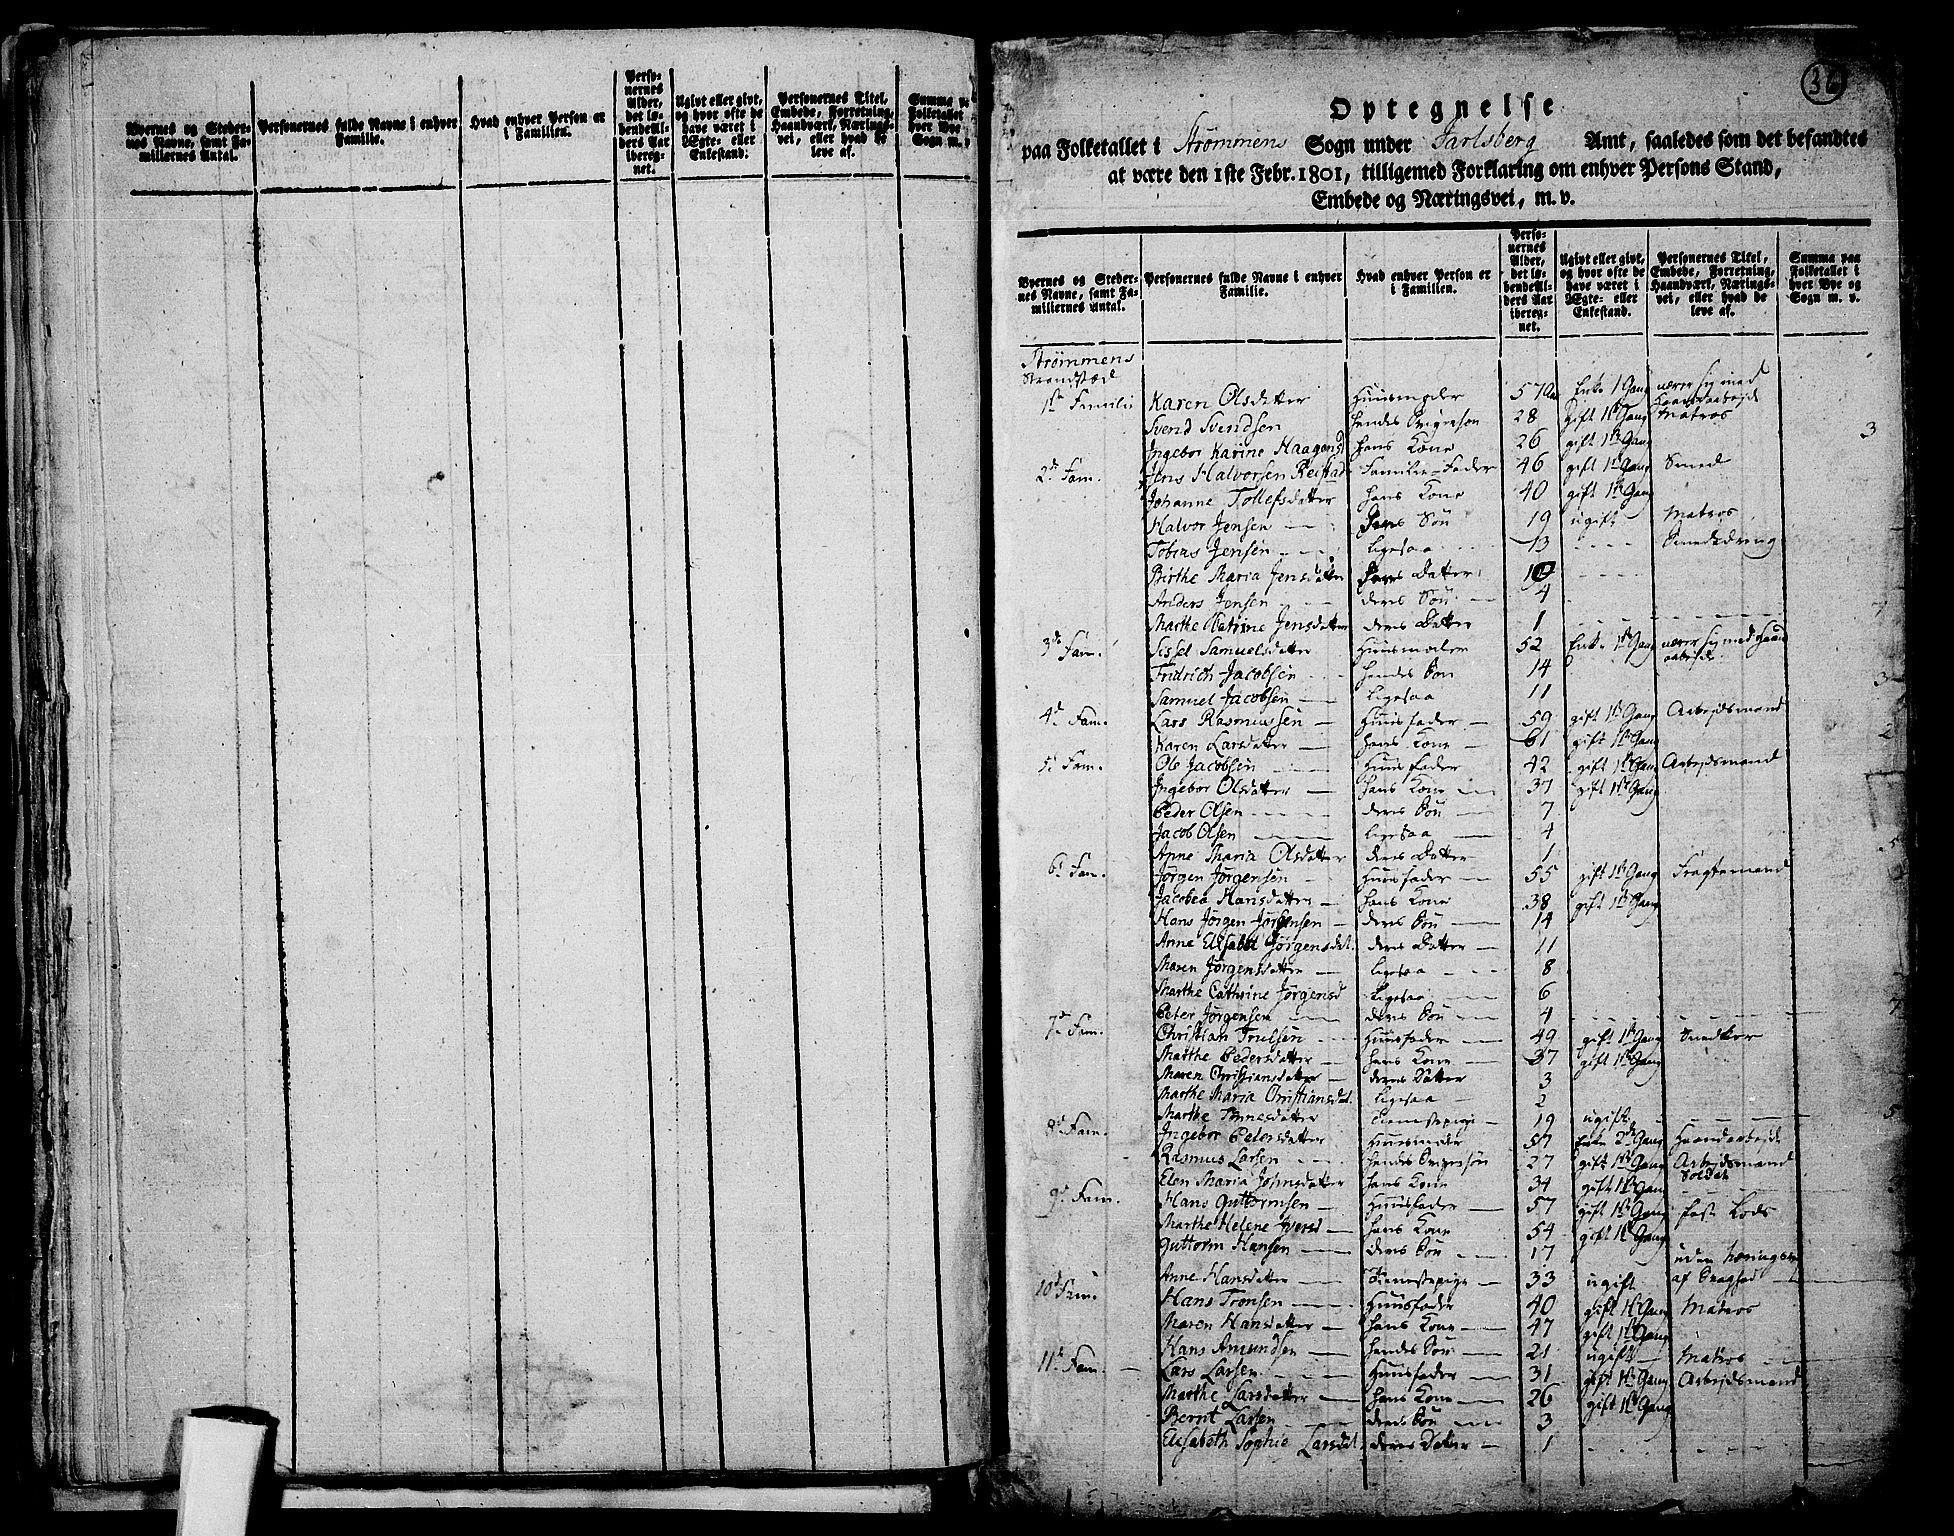 Byernes og Steder-
nes Navne, samt Fa-
miliernes Antal.
Personernes fulde Navne i enhver
Familie.
Hvad enhver Person er
i Familien.
Perso-
nernes
Alder,
det lø-
bendeAl-
ders Aar
ibereg-
net.
Ugivt eller givt,
og hvor ofte de
have været i
Ægte- eller
Enkestand.
Personernes Titel,
Embede, Forretning,
Haandværk, Nærings-
vei, eller hvad de
leve af.
Summa pa
Folketallet
hver Bye
Sogn m. v.
Optegnelse
paa Folketallet i Strømmens Sogn under Jarlsberg Amt, saaledes som det befandtes
at være den 1ste Febr. 1801, tilligemed Forklaring om enhver Persons Stand,
Embede og Næringsvei, m. v.
Byernes og Steder-
nes Navne, samt Fa-
miliernes Antal.
Personernes fulde Navne i enhver
Familie.
Hvad enhver Person er
i Familien.
Perso-
nernes
Alder,
det lø-
bendeAl-
ders Aar
ibereg-
net.
Ugivt eller givt,
og hvor ofte de
have været i
Ægte- eller
Enkestand.
Personernes Titel,
Embede, Forretning,
Haandværk, Nærings-
vei, eller hvad de
leve af.
Summa paa
Folketallet i
hver Bye og
Sogn m. v.
Strømmens
Strandstæd
1ste Familie Karen Olsdatter Huusmoder 57 Enke 1 Gang nærer sig med
Haandarbejde
Svend Svendsen hendes Svigersøn 28 gift 1ste Gang Matros
Ingebor Karine Haagensd hans Kone 26 gift 1ste Gang 3
2de Fam. Jens Halvorsen Reistad Familie-Fader 46 gift 1ste Gang Smed
Johanne Tollefsdatter hans Kone 40 gift 1ste Gang
Halvor Jensen Søn 19 ugift Matros
Tobias Jensen ligesaa 13 Smededreng
Birthe Maria Jensdatter Datter 10
Anders Jensen deres Søn 4
Marthe Catrine Jensdatter deres Datter 1 7
3de Fam. Sissel Samuelsdatter Huusmoder 52 Enke 1ste Gang nærer sig med Haand
arbejde
Fridrich Jacobsen hendes Søn 14
Samuel Jacobsen ligesaa 11 3
4de Fam. Lars Rasmussen Huusfader 59 gift 1ste Gang Arbejdsmand
Karen Larsdatter hans Kone 61 gift 1ste Gang 2
5te Fam. Ole Jacobsen Huusfader 42 gift 1ste Gang Arbejdsmand
Ingebor Olsdatter hans Kone 37 gift 1ste Gang
Peder Olsen deres Søn 7
Jacob Olsen ligesaa 4
Anne Maria Olsdatter deres Datter 1 5
6te Fam. Jørgen Jørgensen Huusfader 55 gift 1ste Gang Fragtemand
Jacobea Hansdatter hans Kone 38 gift 1ste Gang
Hans Jørgen Jørgensen deres Søn 14
Anne Elisabet Jørgensdat. deres Datter 11
Maren Jørgensdatter ligesaa 8
Marthe Cathrine Jørgensd ligesaa 6
Peter Jørgensen deres Søn 4 7
7de Fam. Christian Huusfader 49 gift 1ste Gang Snedker
Marthe Pedersdatter hans Kone 37 gift 1ste Gang
Maren Christiansdatter deres Datter 3
Marthe Maria Christiansdat. ligesaa 2
Marthe Tienestepige 19 ugift 5
8de Fam. Ingebor Petersdatter Huusmoder 57 Enke 2de Gang Haandarbejde
Rasmus Larsen hendes Svigersøn 27 gift 1ste Gang Arbejdsmand
Soldat
Elen Maria Johnsdatter hans Kone 34 gift 1ste Gang
9de Fam. Hans Guttormsen Huusfader 57 gift 1ste Gang fast Lods
Marthe Helene Iversd hans Kone 54 gift 1ste Gang
Guttorm Hansen deres Søn 17
Anne Hansdatter Tienestepige 33 ugift
10de Fam. Hans Tronsen Huusfader 40 gift 1ste Gang Matros
Maren Hansdatter hans Kone 47 gift 1ste Gang
Hans Amundsen hendes Søn 21 ugift Matros
11te Fam. Lars Larsen Huusfader 31 gift 1ste Gang Arbejdsmand
Marthe Larsdatter hans Kone 26 gift 1ste Gang
Bernt Larsen deres Søn 3
Elisabeth Sophie Larsdat. deres Datter 1